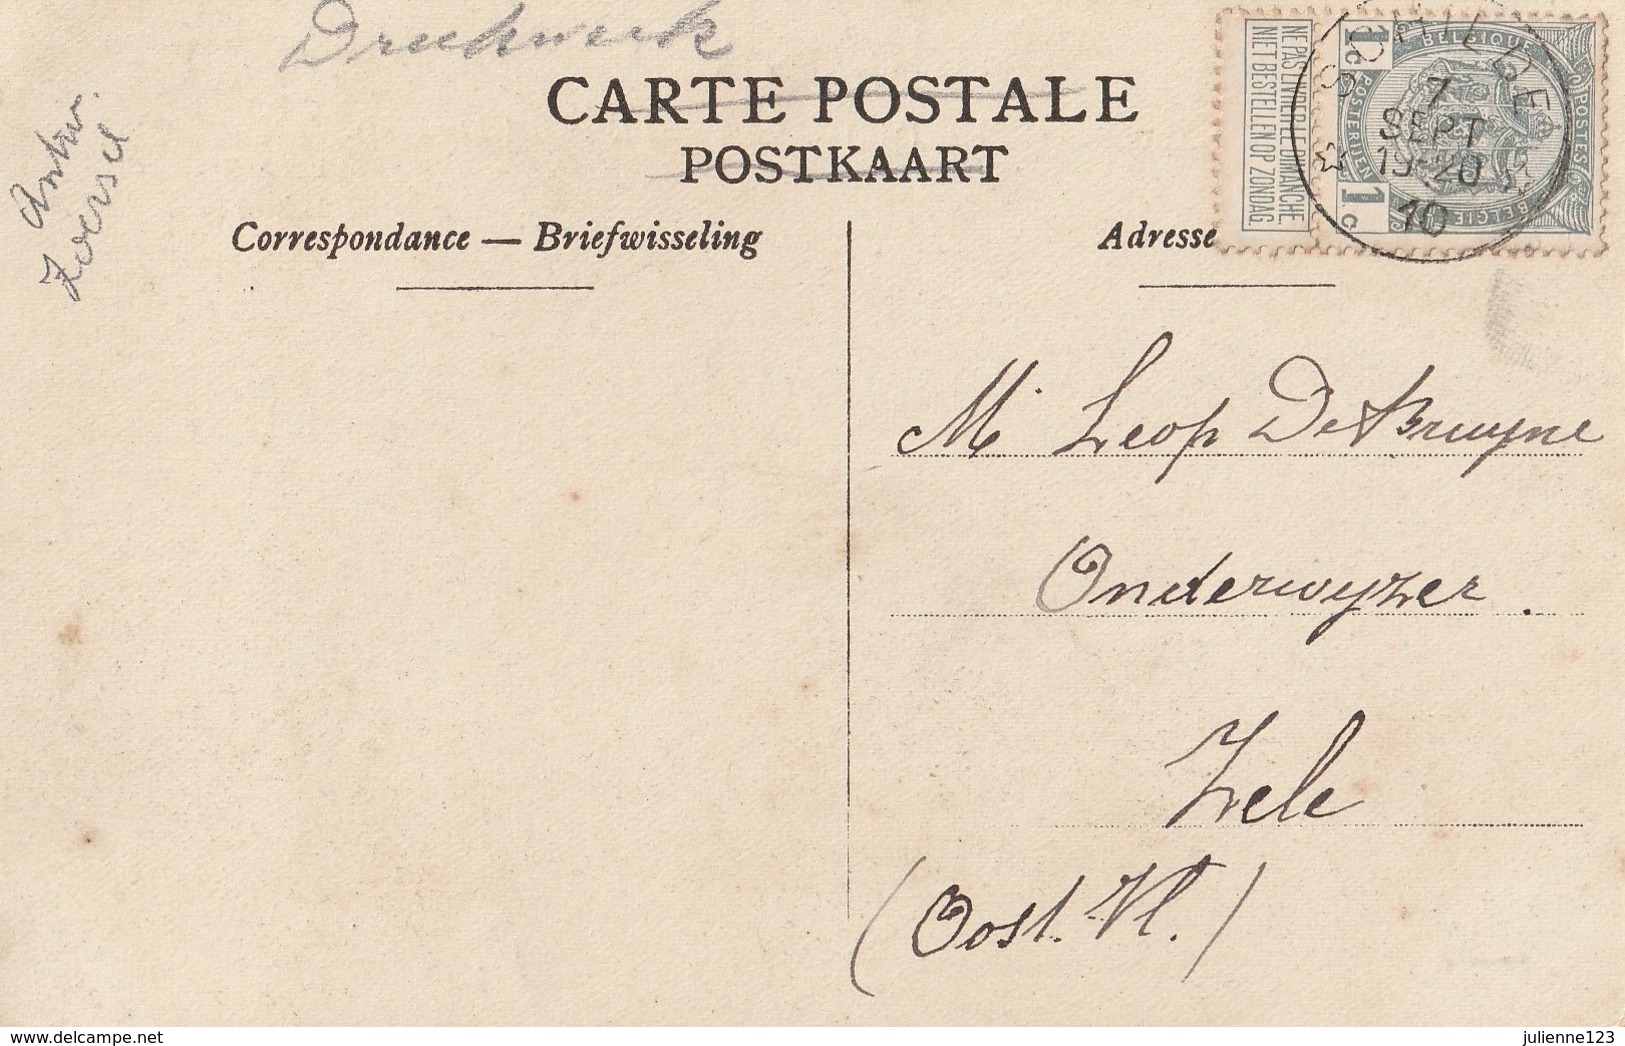 Drukwerk
CARTE POSTALE
POSTKAART
Correspondance — Briefwisseling
Adresse
Antw.
Zoersel
NE PAS LIVRER LE DIMANCHE
NIET BESTELLEN OP ZONDAG
1c BELGIQUE POSTES
POSTERIJEN BELGIË 1c
SCHILDE
7
SEPT
19-20
10
Mr Leop De Bruyne
Onderwyzer.
Zele
(Oost. Vl.)
www.delcampe.net
julienne123